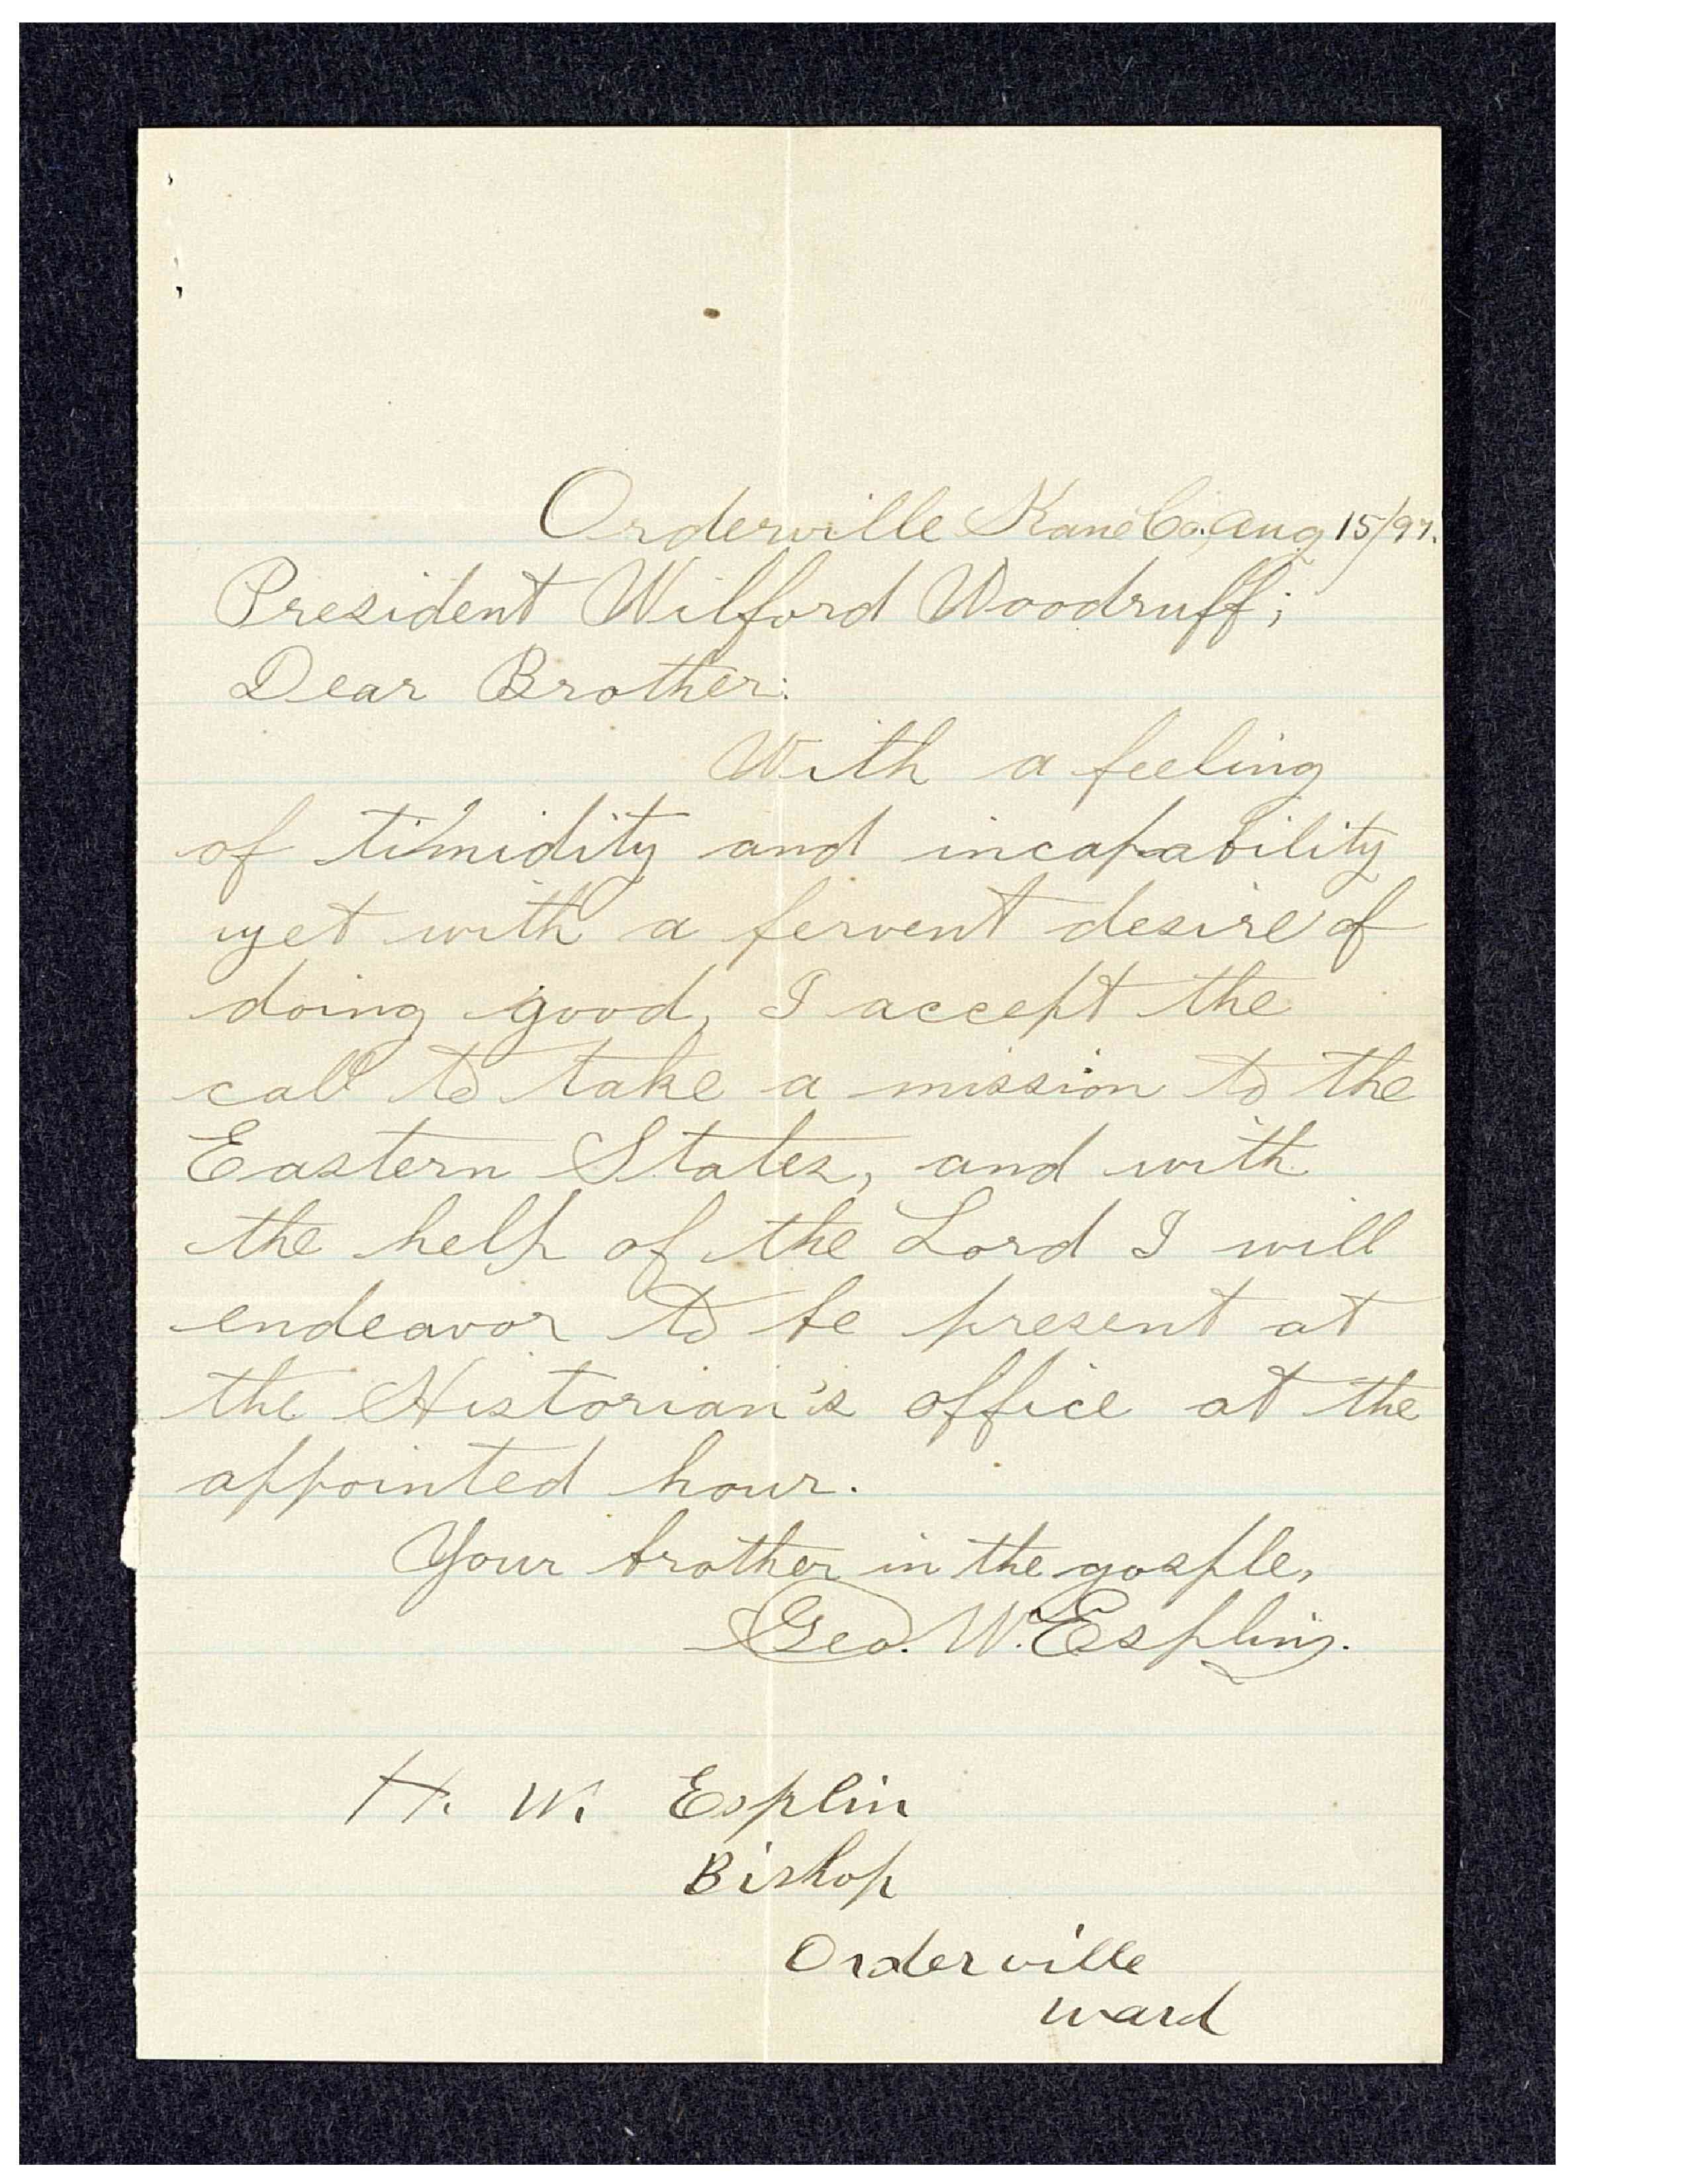 Orderville Kane Co. Aug 15/97.
President Wilford Woodruff;
Dear Brother:
With a feeling
of timidity and incapability
yet with a fervent desire of
doing good, I accept the
call to take a mission to the
Eastern States, and with
the help of the Lord I will
endeavor to be present at
the Historian's office at the
appointed hour.
Your brother in the gosple,
Geo. W. Esplin.
H. W. Esplin
Bishop
Orderville
ward